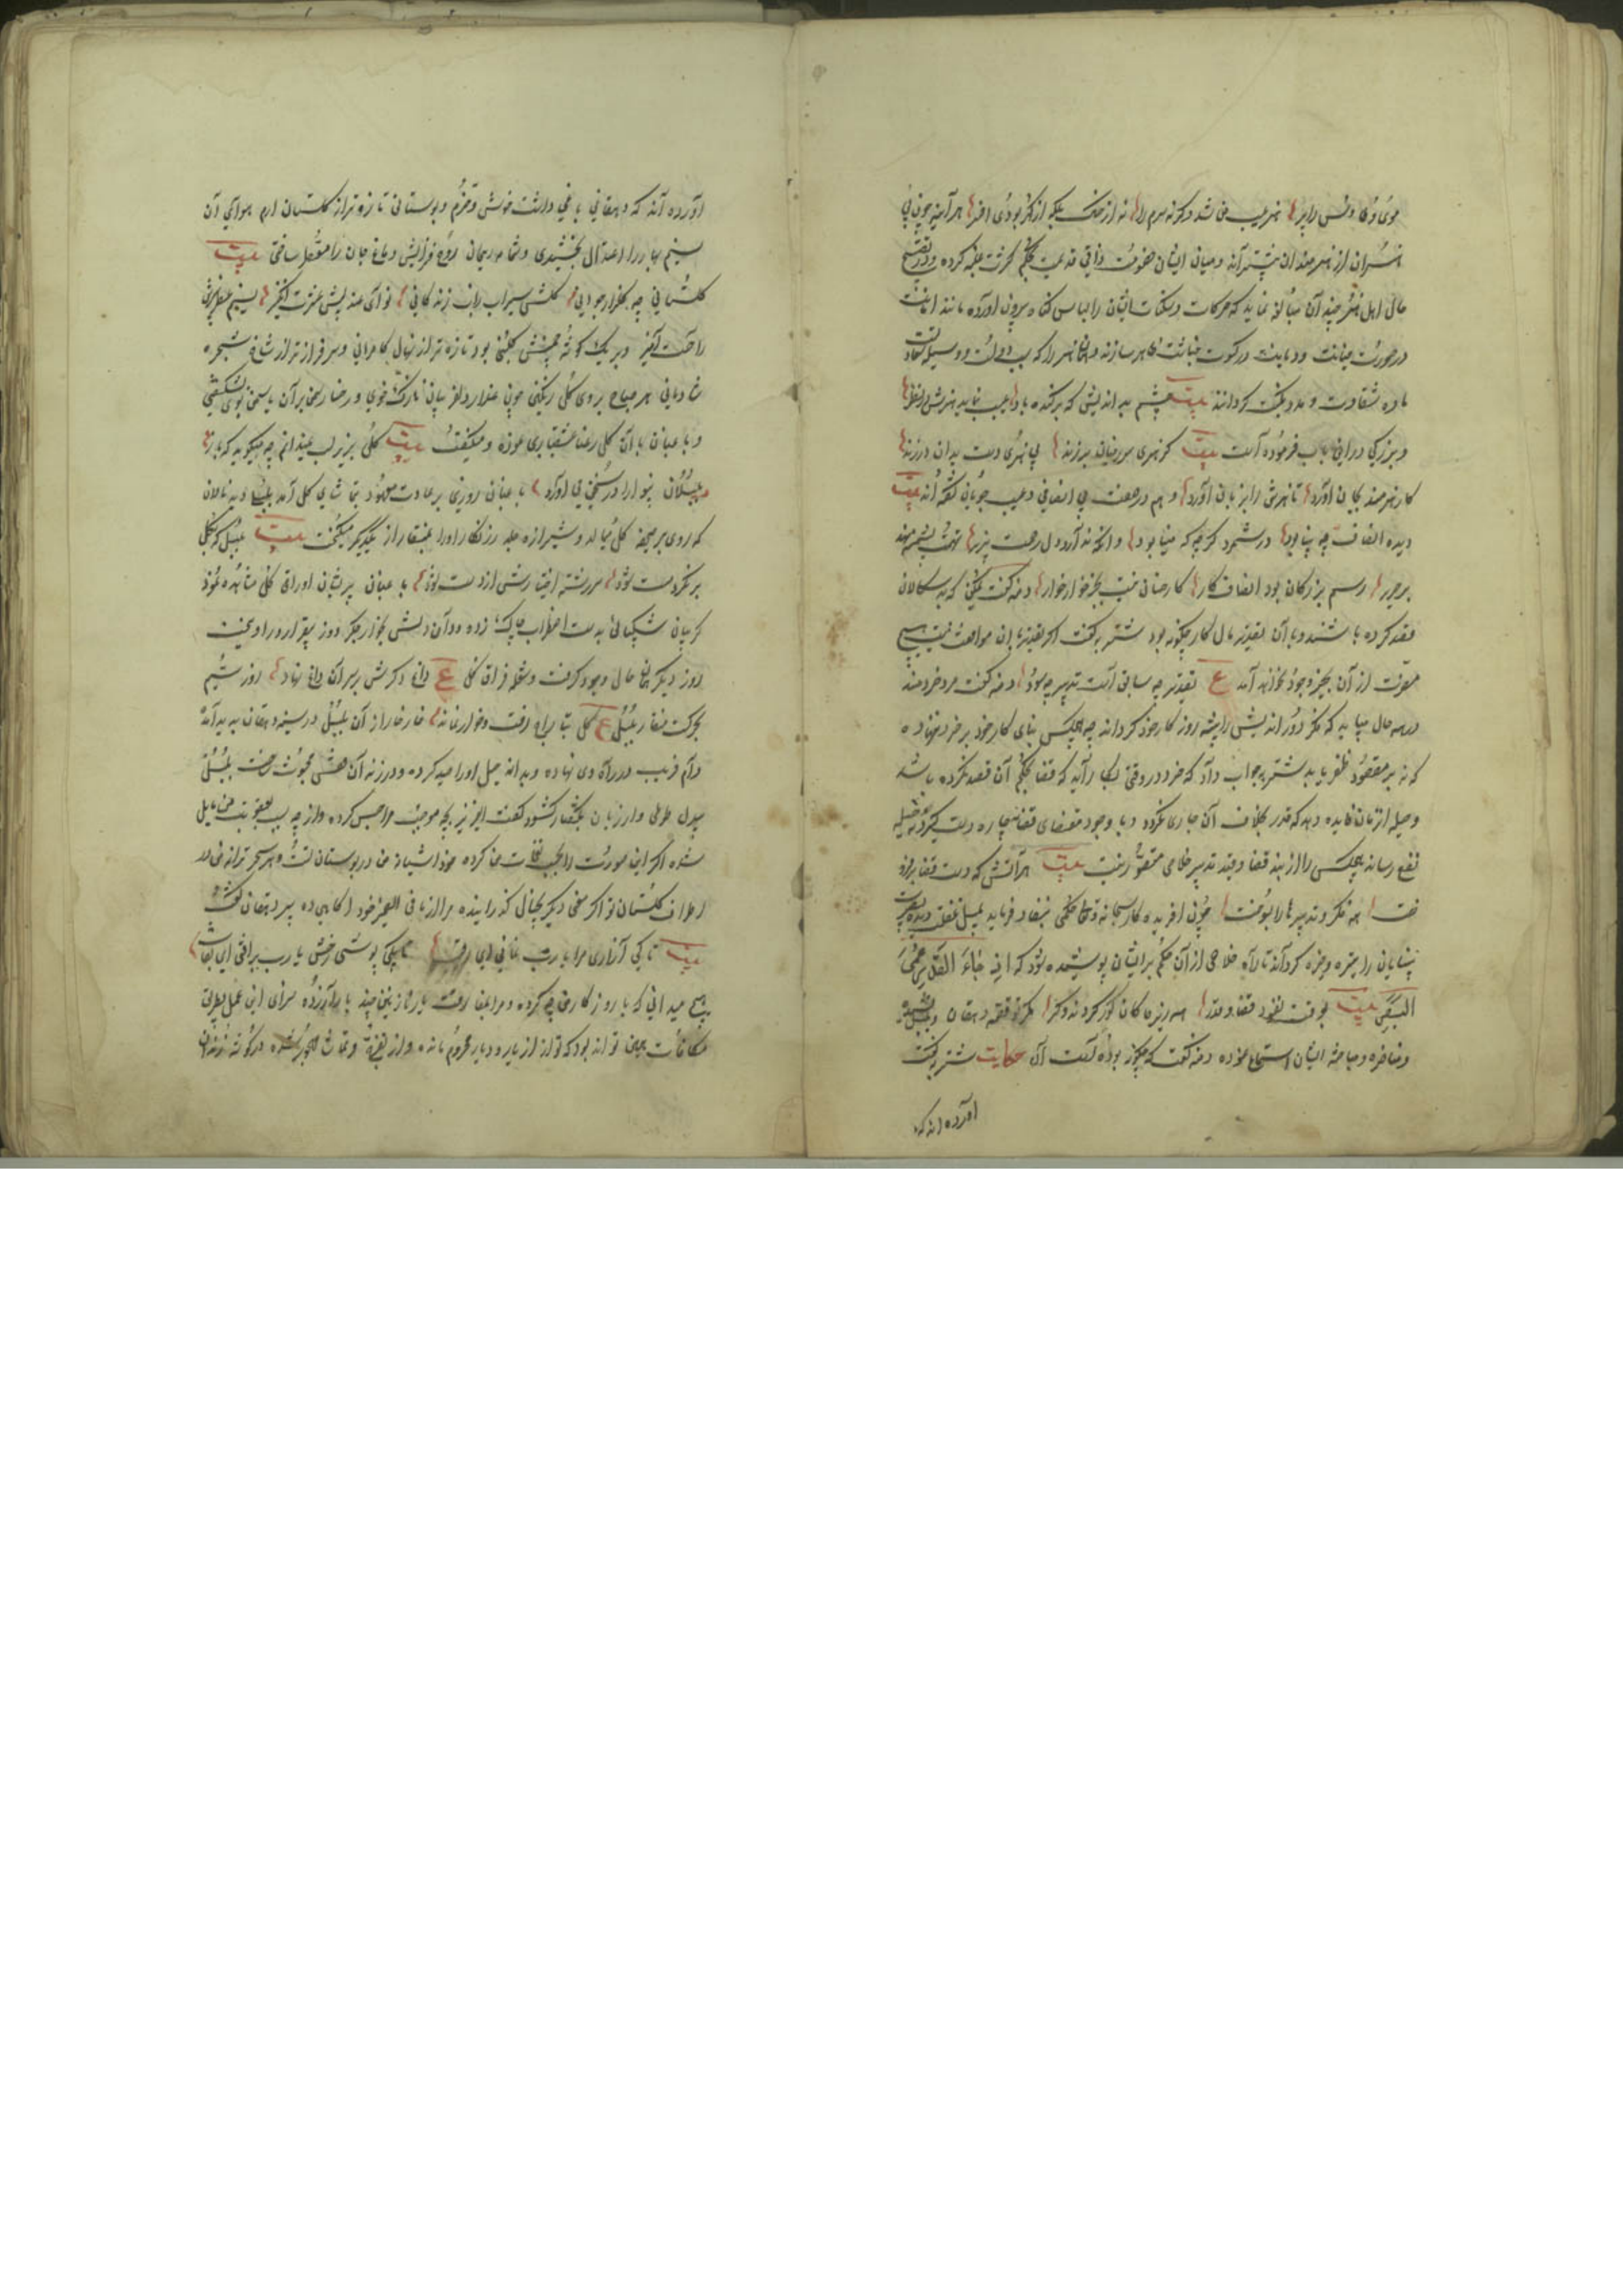 هنران از هنرمندان بیشتر آند و میان ایشان خصومت ذاتی قدیمست بحکم کثرت غلبه کرده و در تقبیح
حال اهل هنر چندان مبالغه نمایند که حرکات و سکنات ایشان را لباس کناه بیرون آورده مانند امانت
در صورت خیانت و دیانت در کسوت خیانت ظاهر سازند و همان هنر را که سبب دولت و وسیله سعادت
ماده شقاوت و مدد نکبت کردانند بیت چشم بداندیش که برکنده باد عیب نماید هنرش در نظر
و بزرکی در این باب فرموده است بیت کر هنری سر ز میان برزند بی هنری دست بدان درزند
کار هنرمند بجان آورد تا هنرش را بزیان آورد و هم در صفت بی انصافی و عیب جویان کفته اند بیت
دیده انصاف چو بینا بود در شمرد کرچه که مینا بود وانکه نه آرد دل رحمت پذیر تهمت پشمینه نهد
بر حریر رسم بزرکان بود انصاف کار کار خسان نیست بجز خار خار دمنه کفت ممکن که بدسکالان
قصد کرده باشند و با آن تقدیر مآل کار چکونه بود شتربه کفت اکر تقدیر با آن موافقت نیست هیچ
مضرت از آن بحیز وجود نخواهد آمد ع تقدیر چو سابق است تدبیر چه سود دمنه کفت مرد خردمند
در همه حال میباید که فکر دوراندیش را پیشه روزکار خود کرداند چه هیچکس بنای کار خود بر خرد ننهاده
که نه بر مقصود ظفر یابد شتربه جواب داد که خرد در وقتی بکار آید که قضا بحکم آن قصد نکرده باشد
و حیله آن زمان فایده دهد که قدر بخلاف آن جاری نکردد و با وجود مقتضای قضا نه چاره دست کیرد و نه حیله
نفع رساند هیچکس را از بند قضا و قید تدبیر خلاصی متصور نیست بیت هر آتش که دست قضا برفروخت
همه فکر و تدبیرها را بسوخت چون آفریدکار سبحانه و تعالی حکمی بنفاذ فرماید بمیل غفلت دیده بصیرت
بینایان را خیره و تیره کرداند تا راه خلاصی از آن حکم بر ایشان پوشیده شود که اذا جاء القدر عمی
البصر بیت بوقت نفوذ قضا و قدر همه زیرکان کور کردند و کر مکر تو قصه دهقان و بلبل نشنیده
و مناظره و مباحثه ایشان استماع نموده دمنه کفت که چکونه بوده کفت آن حکایت شتربه کفت
آورده اند که
آورده اند که دهقانی باغی داشت خوش و خرم و بوستانی تازه تر از کلستان ارم هوای آن
نسیم بهار را اعتدال بخشیدی و شمامه ریحان روح فزایش دماغ جان را معطر ساختی بیت
کلستانی چو کلزار جوانی کلش سیراب آب زندکانی نوای عندلیبش عشرت انکیز نسیم عطربیزش
راحت آمیز و بر یک کوشه چمنش کلبنی بود تازه تر از نهال کامرانی و سرفراز تر از شاخ شجره
شادمانی هر صباح بر روی کل رنکین چون عذار دلفریبان نازک خوی و رخسار سمن بران یاسمن بوی بشکفتی
و باغبان با آن کل رعنا عشقبازی نموده و میکفت بیت کل بزیر لب نمیدانم چه میکوید که باز
بلبلان بینوا را در فغان می آورد باغبان روزی بر عادت معهود بتماشای کل آمد بلبلی دید نالان
که روی بر صحیفه کل میمالد و شیرازه جلد زرنکار او را بمنقار از یکدیکر میکسیخت بیت بلبل که بکل
در نکرد مست شود سر رشته اختیارش از دست شود باغبان پریشانی اوراق کل مشاهده نموده
کریبان شکیبائی بدست اضطراب چاک زده و دامن دلش بخار جکر دوز بیقراری در آویخت
روز دیکر همان حال وجود کرفت و شعله فراق کل ع داغ دکرش بر سر آن داغ نهاد روز سیم
بحرکت منقار بلبل ع کل بتاراج رفت و خار بماند خارخار از آن بلبل در سینه دهقان پدید آمده
دام فریب در راه وی نهاده و بدانه حیل او را صید کرده و در زندان قفس محبوس ساخت بلبل
بیدل طوطی وار زبان بکفتار کشود کفت ای عزیز بچه موجب مرا حبس کرده و از چه سبب بعقوبت من مایل
شده اکر این صورت را بجهت نغمات من کرده خود آشیانه من در بوستان تست و هر سحر ترانه من در
اطراف کلستان تو اکر سخنی دیکر بخیال کذرانیده مرا از ما فی الضمیر خود آکاهی ده پیر دهقان کفت
هیچ میدانی که با روزکار من چه کرده و مرا بمفارقت یار نازنین چند بار آزرده سزای این عمل بطریق
مکافات همین تواند بود که تو از یار و دیار محروم مانده و از تفرج و تماشا مهجور شده در کوشه زندان